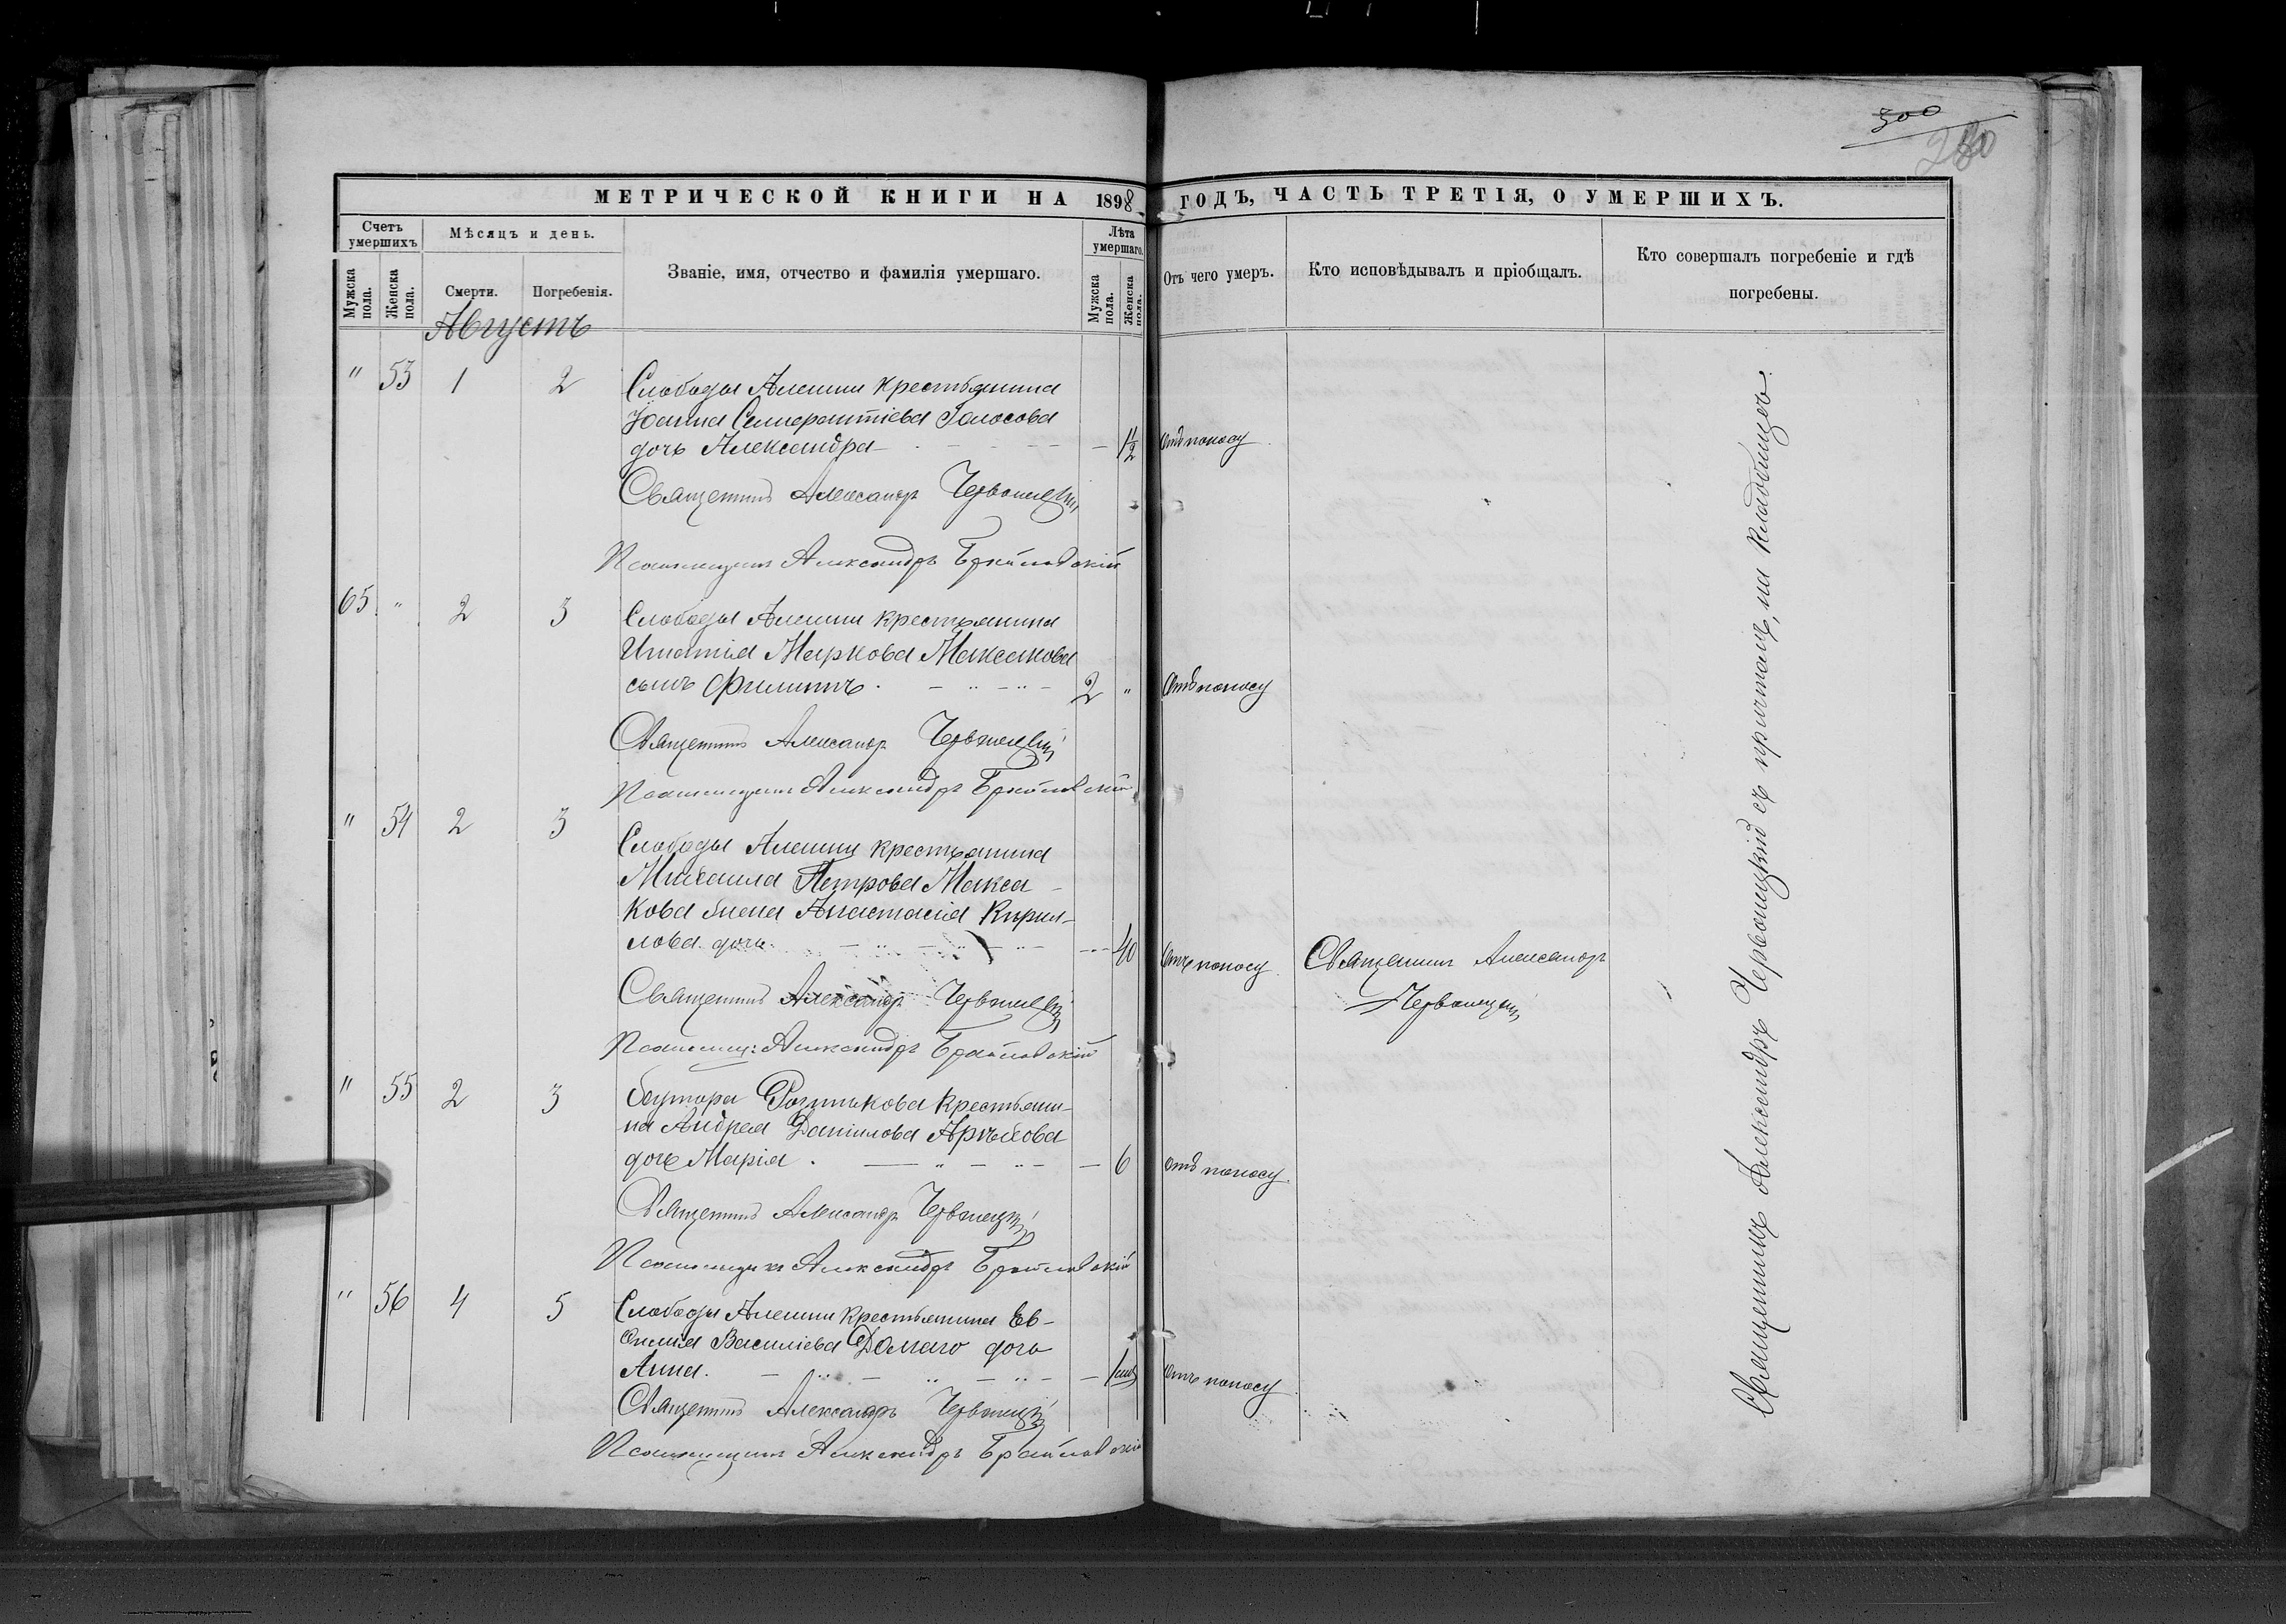 300
280
МЕТРИЧЕСКОЙ КНИГИ НА 1898 ГОДЪ, ЧАСТЬ ТРЕТІЯ, О УМЕРШИХЪ.
Счетъ умершихъ
Мѣсяцъ и день.
Званіе, имя, отчество и фамилія умершаго.
Лѣта умершаго.
Отъ чего умеръ.
Кто исповѣдывалъ и пріобщалъ.
Кто совершалъ погребеніе и гдѣ
погребены.
Мужска пола.
Женска пола.
Смерти.
Погребенія.
Мужска пола.
Женска пола.
Августъ
" 53 1 2 Слободы Алешни крестьянина
Іоанна Голосова
дочь Александра — 1½ отъ поносу
Священникъ Александръ Червонецкій
Псаломщикъ Александръ Браиловскій
65 " 2 3 Слободы Алешни крестьянина
Игнатія Маркова Максакова
сынъ Филиппъ. 2 " отъ поносу
Священникъ Александръ Червонецкій
Псаломщикъ Александръ Браиловскій
" 54 2 3 Слободы Алешни крестьянина
Михаила Петрова Макса-
кова жена Анастасія Кирил-
лова дочь. 40 отъ поносу Священникъ Александръ
Червонецкій
Священникъ Александръ Червонецкій
Псаломщ: Александръ Браиловскій
" 55 2 3 Хутора крестьяни-
на Андрея Даніилова
дочь Марія. 6 отъ поносу
Священникъ Александръ Червонецкій
Псаломщикъ Александръ Браиловскій
" 56 4 5 Слободы Алешни крестьянина Ев-
Василіева дочь
Анна. отъ поносу
Священникъ Александръ Червонецкій
Псаломщикъ Александръ Браиловскій
Священникъ Александръ Червонецкій съ причтомъ, на кладбищѣ.